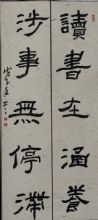 讀書在涵養
涉事無停滯